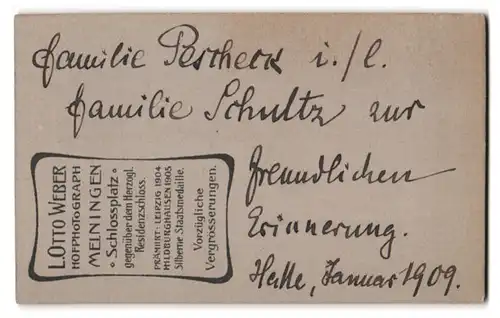 Familie Pescheck i./l.
Familie Schultz zur
freundlichen
Erinnerung.
Halle, Januar 1909.
L. OTTO WEBER
HOFPHOTOGRAPH
MEININGEN
Schlossplatz
gegenüber dem Herzogl.
Residenzschloss.
PRÄMIIRT: LEIPZIG 1904
HILDBURGHAUSEN 1905
Silberne Staatsmedaille.
Vorzügliche
Vergrösserungen.